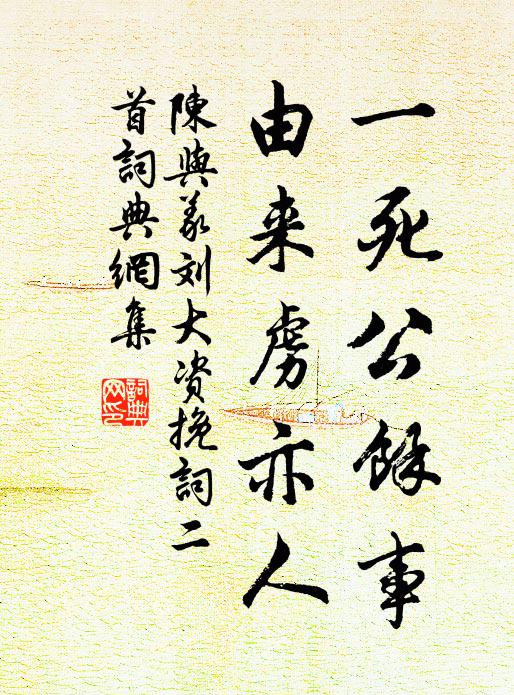 一死公餘事
由来虏亦人
陳與義刘大资挽詞二
首詞典網集
詞典
网印